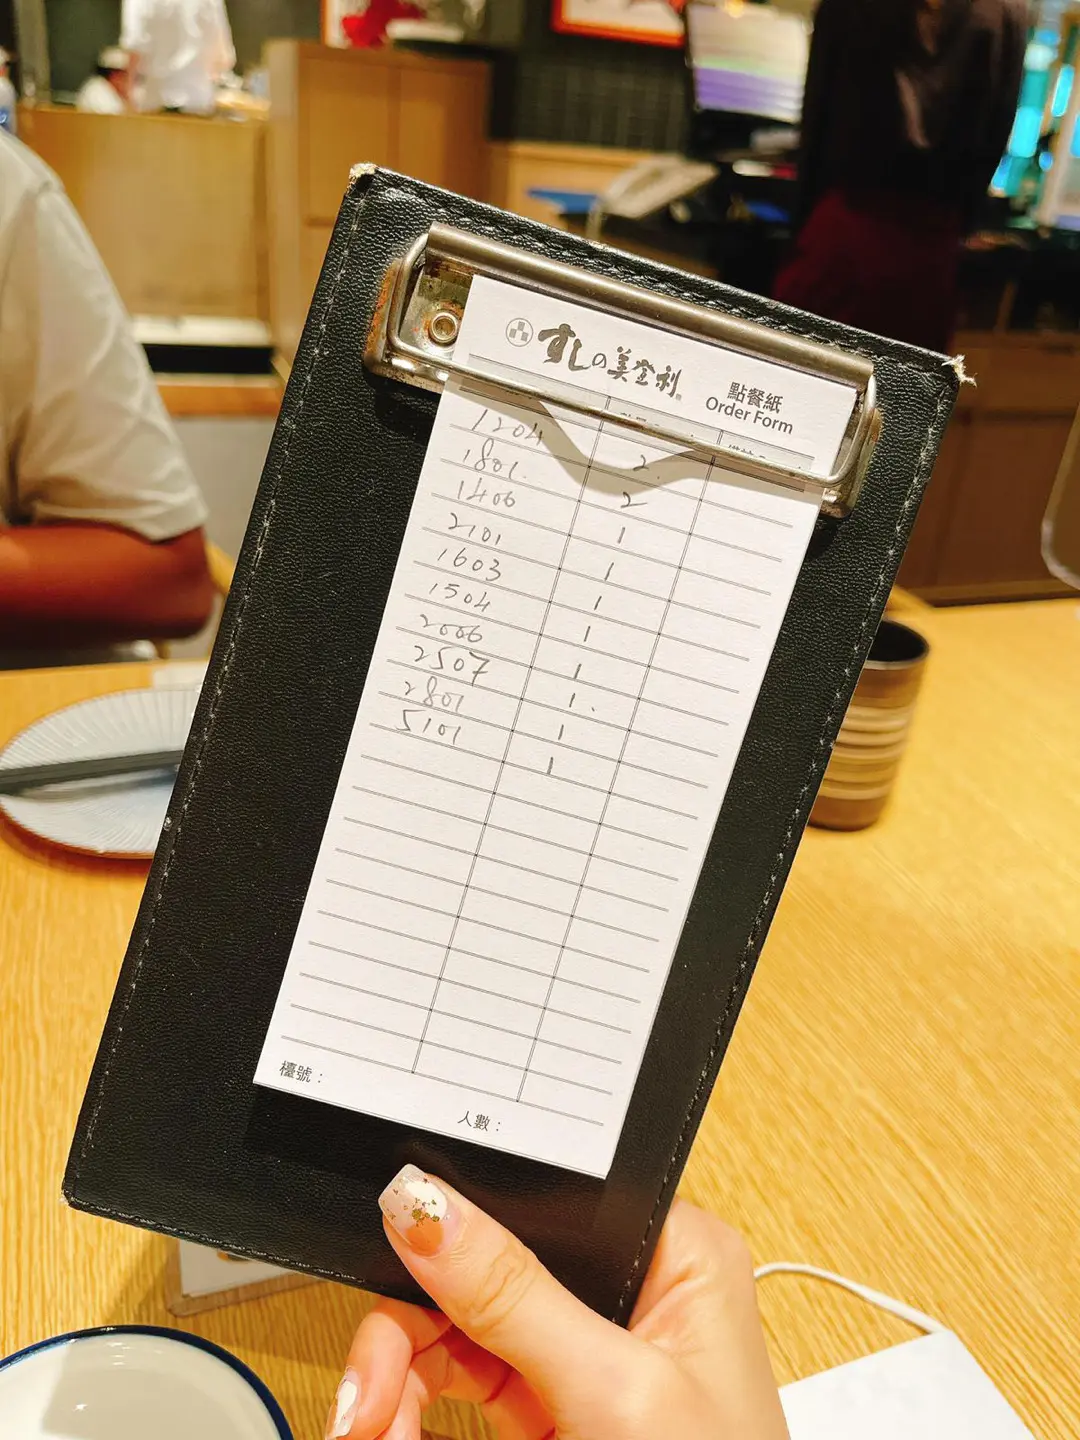 すしの美登利
點餐紙
Order Form
1204 2.
1801. 2
1406 1
2101 1
1603 1
1504 1
2006 1
2507 1.
2801 1
5101 1
檯號：
人數：